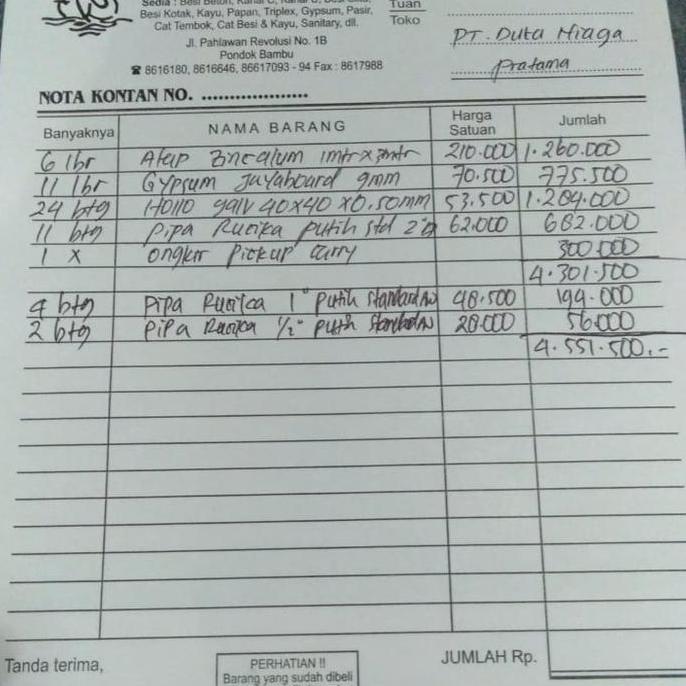 Sedia : Besi Beton, Kanal C, Kanal U, Besi Siku,
Besi Kotak, Kayu, Papan, Triplex, Gypsum, Pasir,
Cat Tembok, Cat Besi & Kayu, Sanitary, dll.
Jl. Pahlawan Revolusi No. 1B
Pondok Bambu
☎ 8616180, 8616646, 86617093 - 94 Fax : 8617988
Tuan
Toko
PT. Duta Niaga
Pratama
NOTA KONTAN NO. ...................
Banyaknya NAMA BARANG Harga Satuan Jumlah
6 lbr Atap Zincalum 1mtr x 3mtr 210.000 1.260.000
11 lbr Gypsum Jayaboard 9mm 70.500 775.500
24 btg Hollo galv 40x40 x0.50mm 53.500 1.284.000
11 btg Pipa Rucika putih std 2" 62.000 682.000
1 x ongkir Pickup Carry 300.000
4.301.500
4 btg Pipa Rucika 1" putih Standard AW 48.500 194.000
2 btg Pipa Rucika 1/2" putih Standard AW 28.000 56.000
4.551.500.-
Tanda terima,
PERHATIAN !!
Barang yang sudah dibeli
JUMLAH Rp.